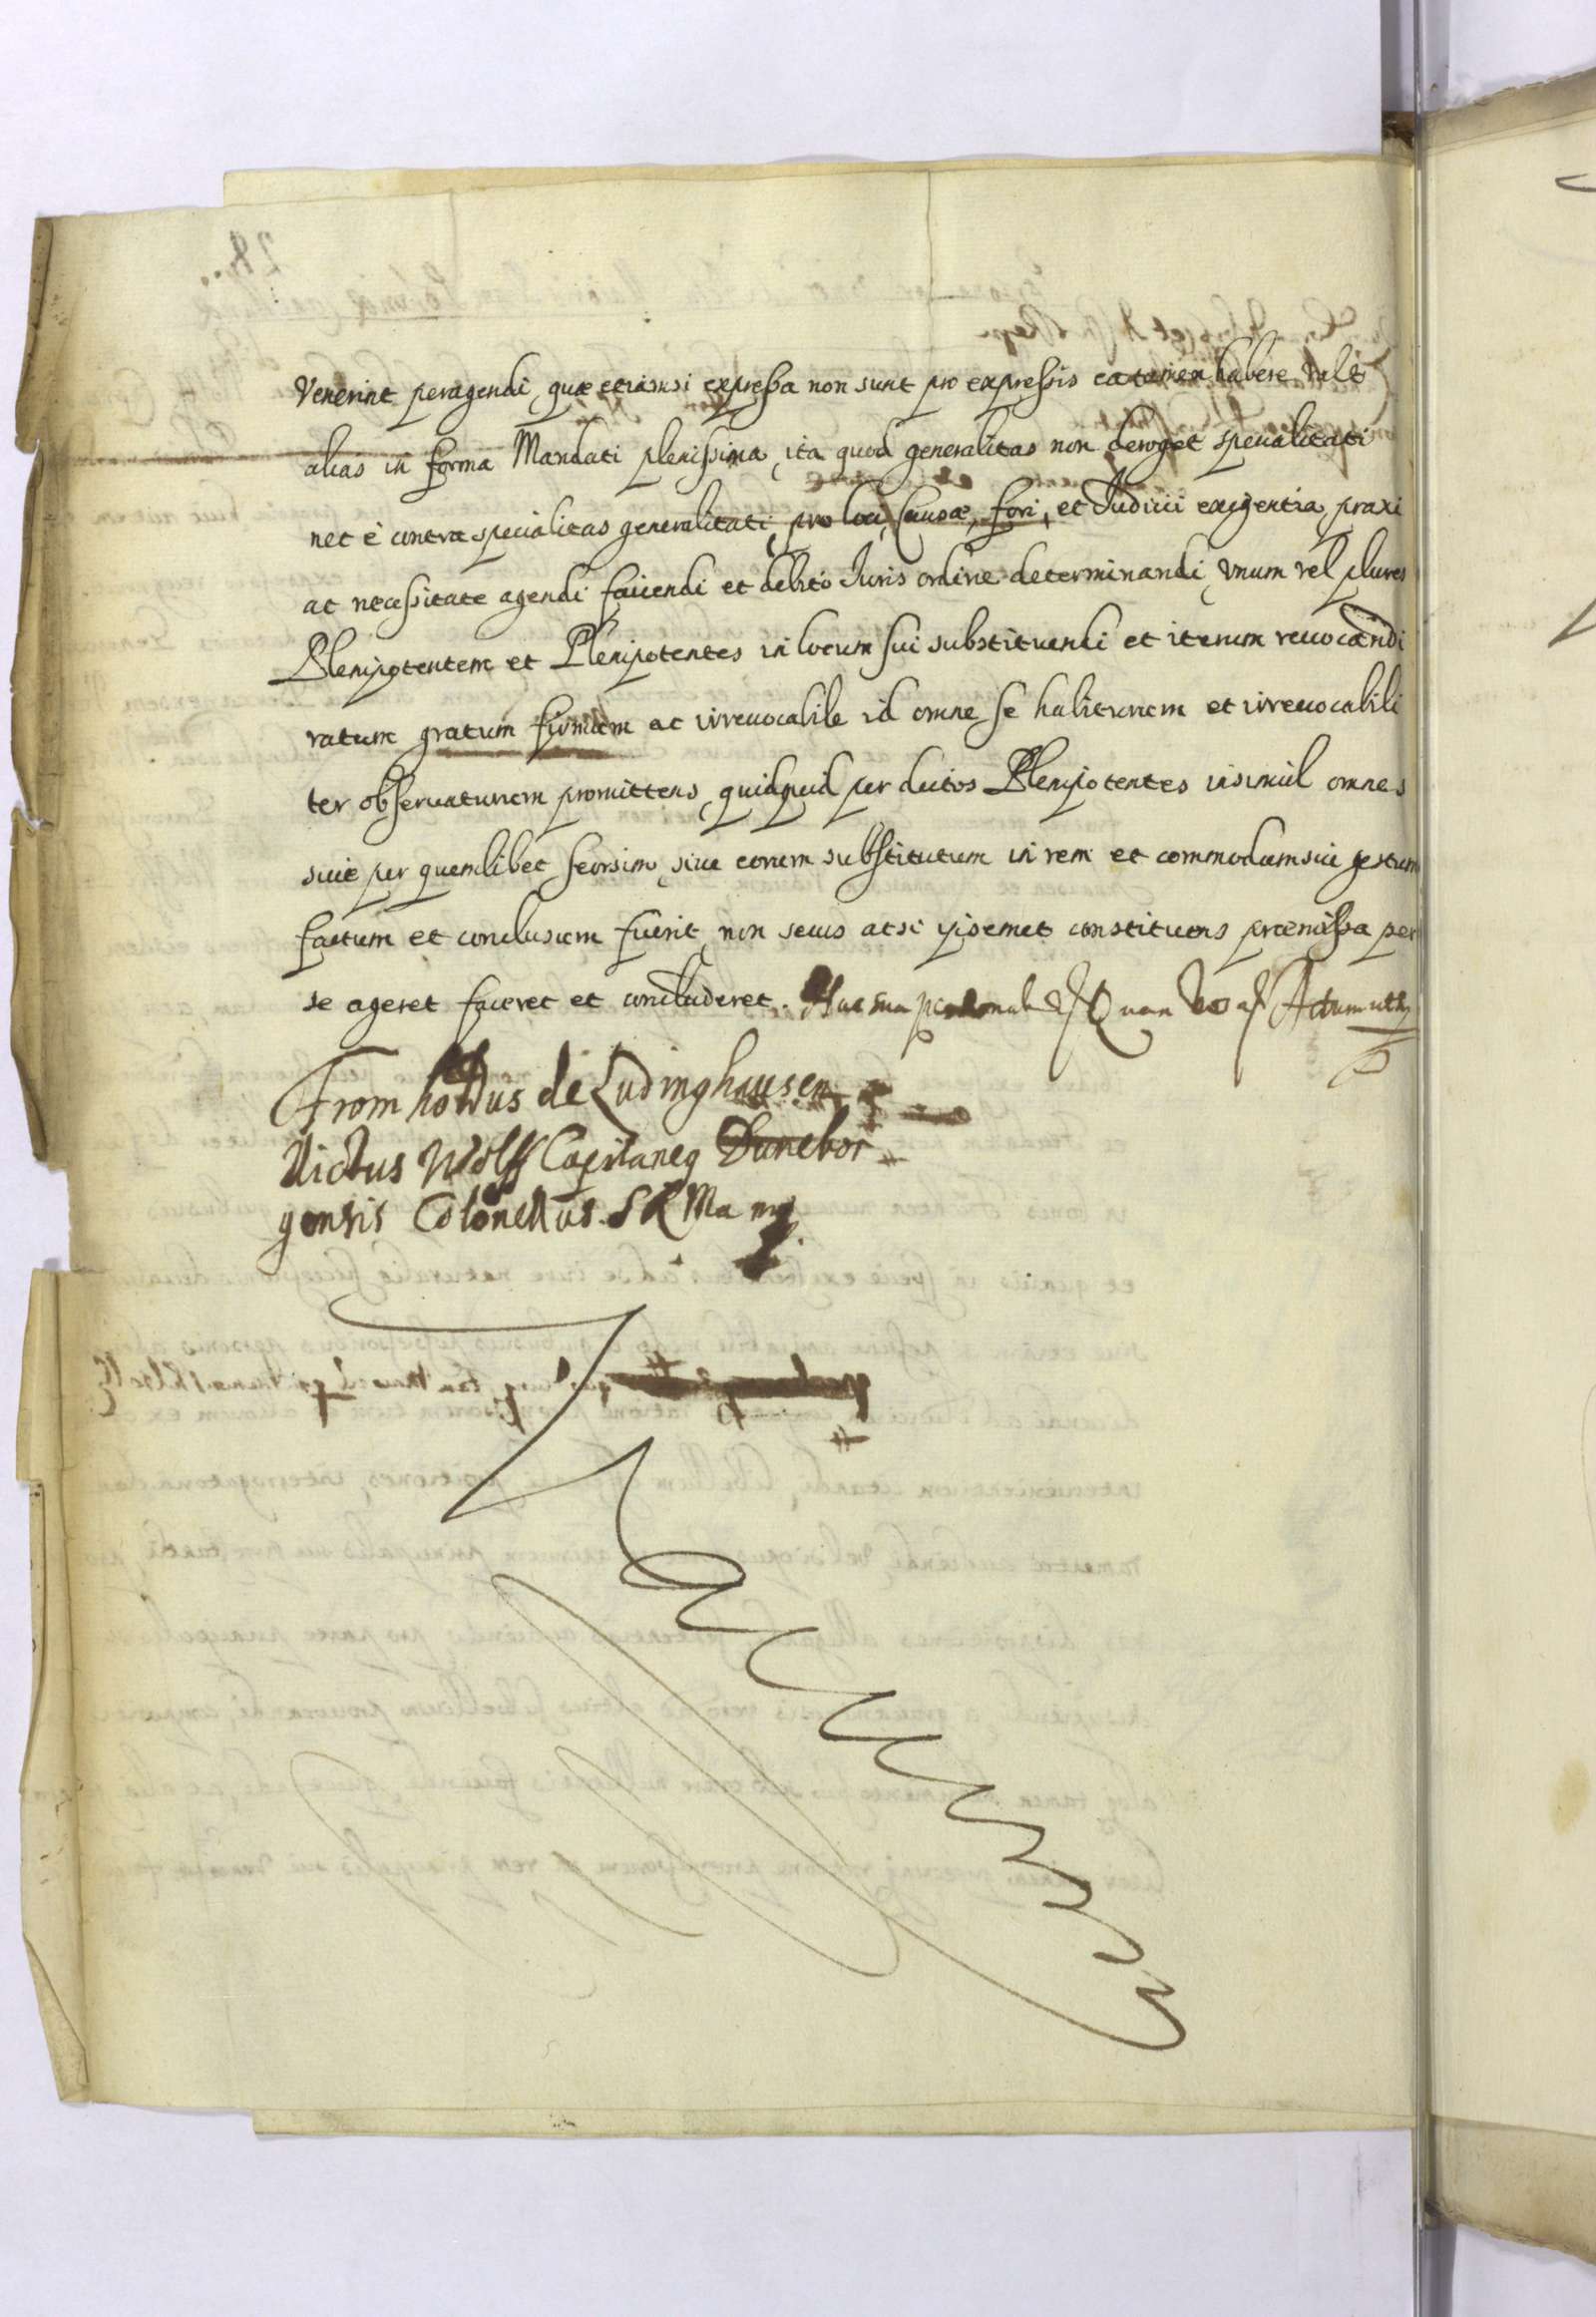 Venerint peragendi, quæ etiamsi expressa non sunt pro expressis ea tamen habere vult
alias in forma Mandati plenissima, ita quod generalitas non deroget specialitati
nec è contra specialitas generalitati, pro loci, Causæ, fori, et Judicii exigentia, praxi
ac necessitate agendi faciendi et debito Juris ordine determinandi, unum vel plures
Plenipotentem et Plenipotentes in locum sui substituendi et iterum reuocandi
ratum gratum firmum ac irreuocabile id omne se habiturum et irreuocabili
ter obseruaturum promittens, quidquid per dictos Plenipotentes insimul omnes
siue per quemlibet seorsim, siue eorum substitutum in rem et commodum sui gestum
factum et conclusum fuerit, non secus ac si ipsemet constituens præmissa per
se ageret faceret et concluderet. Hac sua
Fromholdus de Ludinghausen
dictus Wolff Capitaneq Dunebor
gensis Colonellus S R Ma